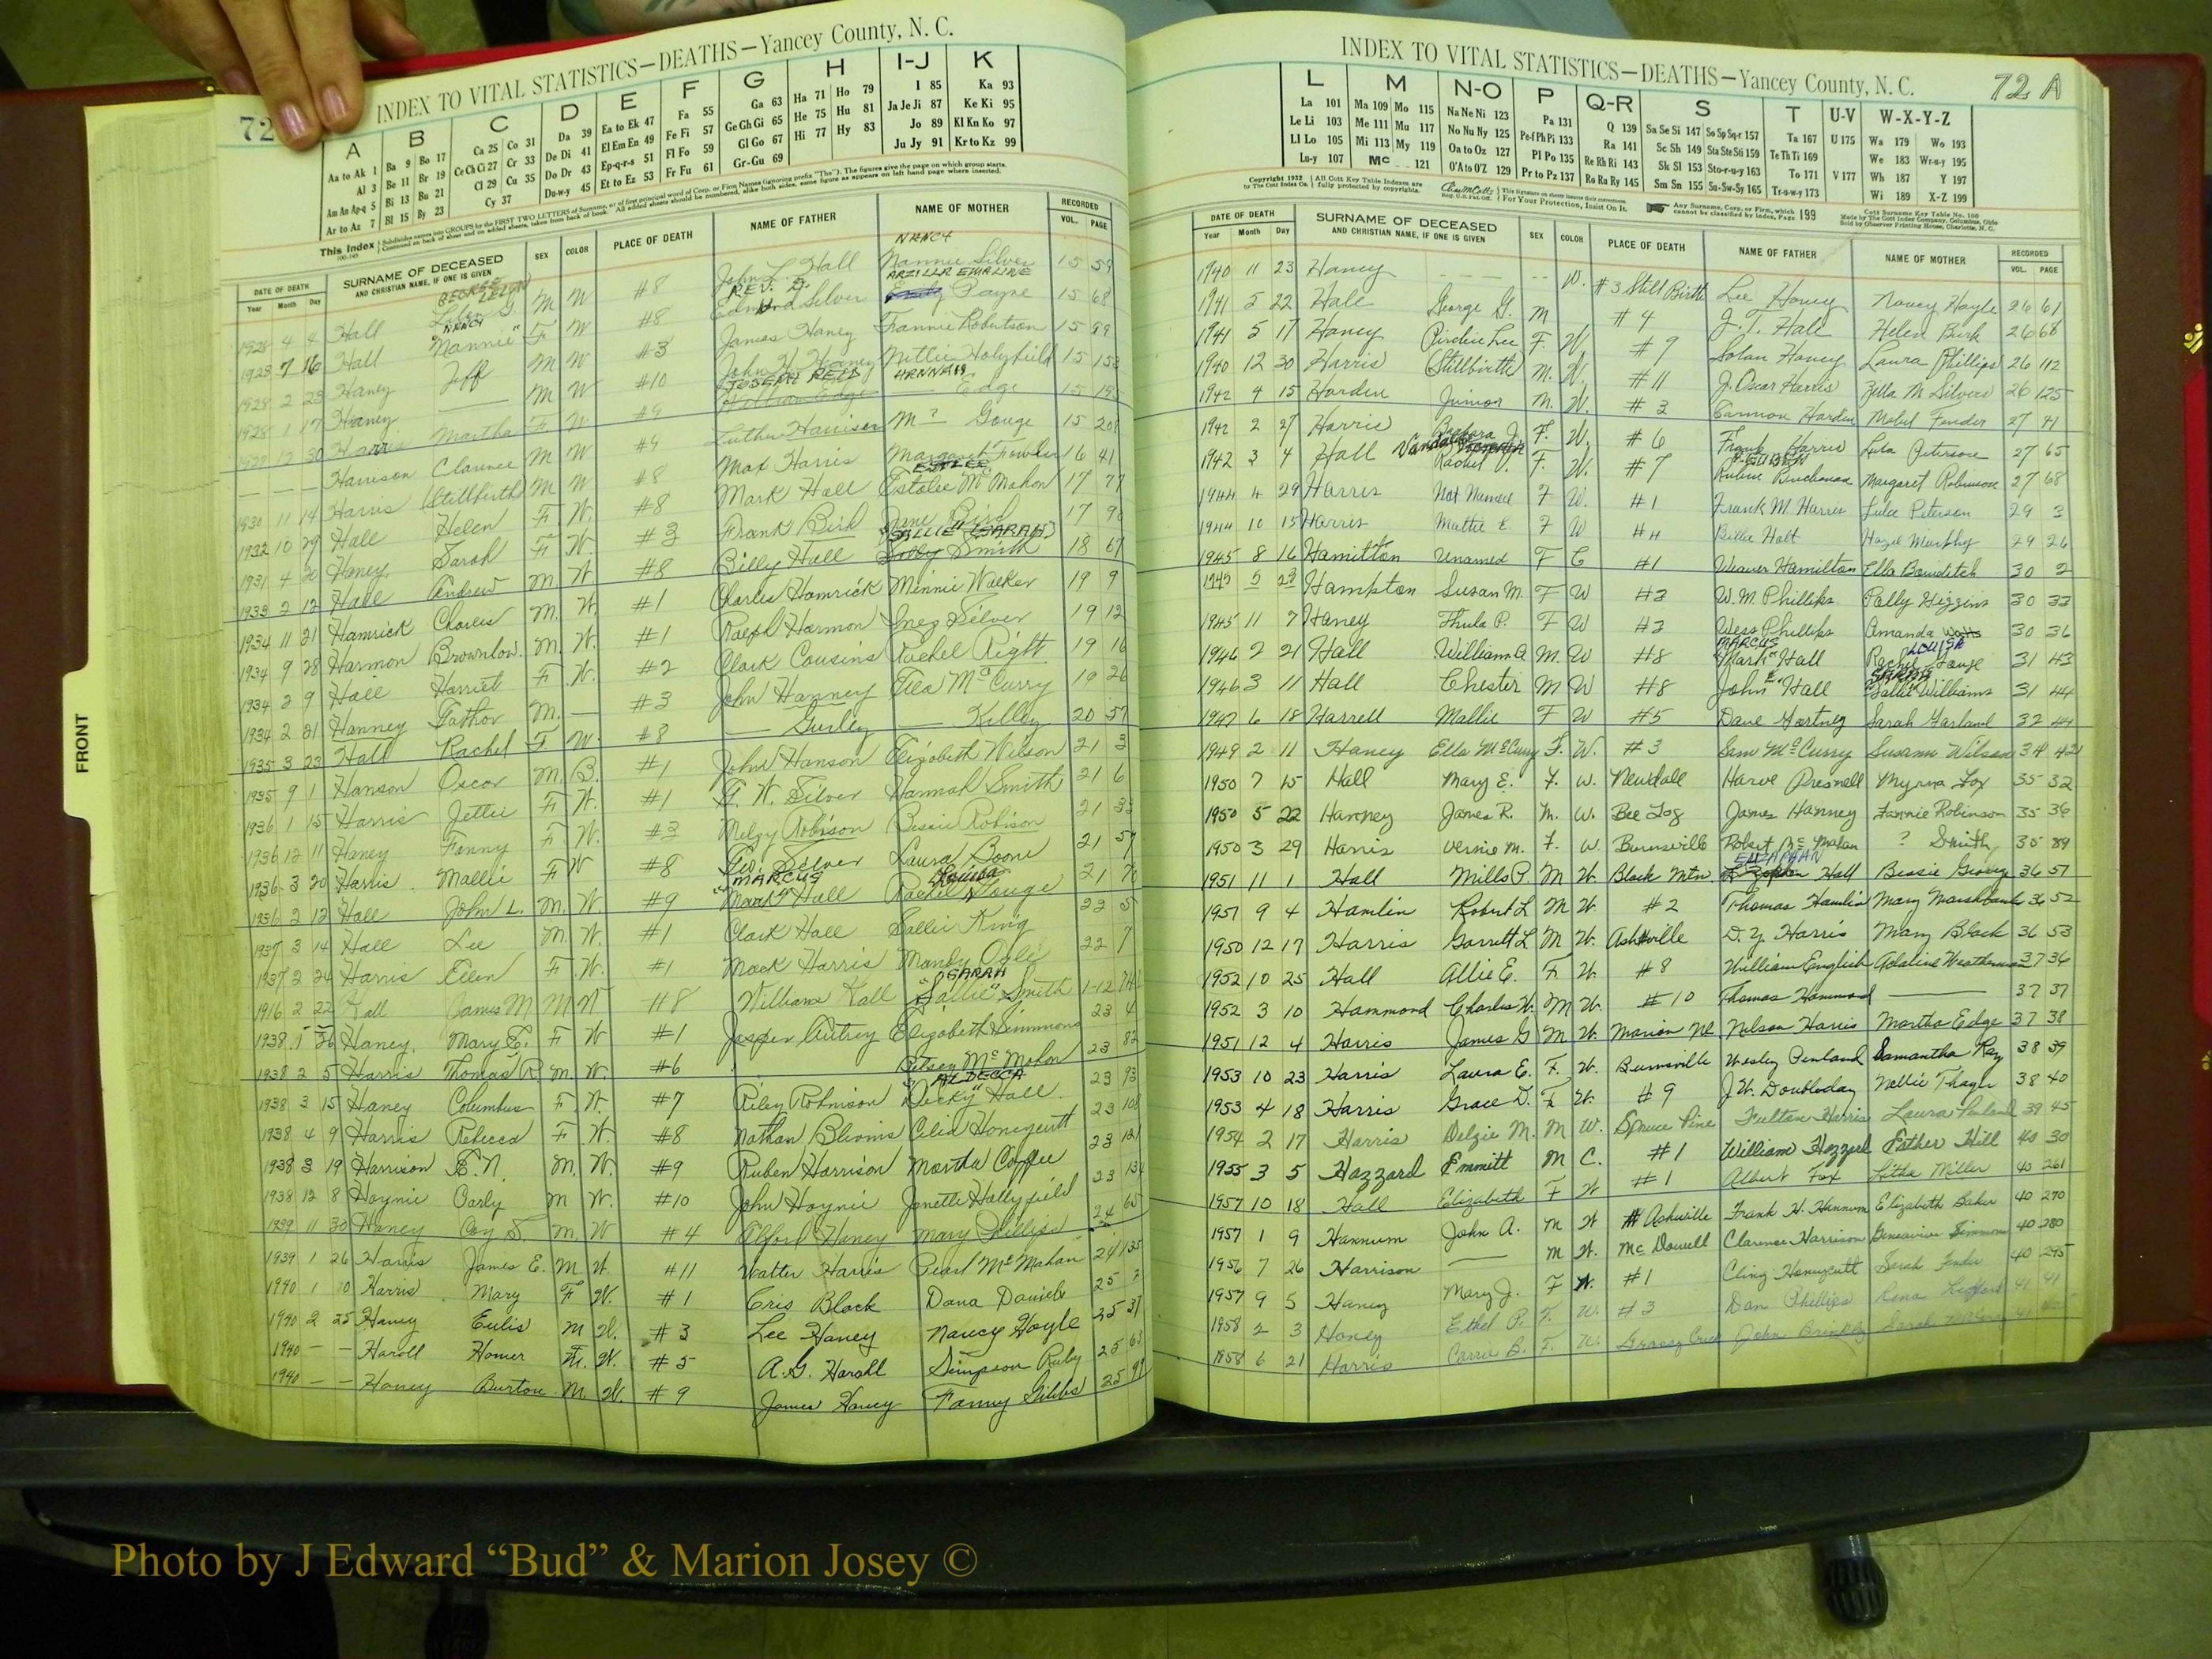 72
INDEX TO VITAL STATISTICS—DEATHS—Yancey County, N. C.
A B C D E F G H I-J K
Aa to Ak 1 Ba 9 Bo 17 Ca 25 Co 31 Da 39 Ea to Ek 47 Fa 55 Ga 63 Ha 71 Ho 79 I 85 Ka 93
Al 3 Be 11 Br 19 Ce Ch Ci 27 Cr 33 De Di 41 El Em En 49 Fe Fi 57 Ge Gh Gi 65 He 75 Hu 81 Ja Je Ji 87 Ke Ki 95
Am An Ap-q 5 Bi 13 Bu 21 Cl 29 Cu 35 Do Dr 43 Ep-q-r-s 51 Fl Fo 59 Gl Go 67 Hi 77 Hy 83 Jo 89 Kl Kn Ko 97
Ar to Az 7 Bl 15 By 23 Cy 37 Du-w-y 45 Et to Ez 53 Fr Fu 61 Gr-Gu 69 Ju Jy 91 Kr to Kz 99
This Index
DATE OF DEATH SURNAME OF DECEASED AND CHRISTIAN NAME, IF ONE IS GIVEN SEX COLOR PLACE OF DEATH NAME OF FATHER NAME OF MOTHER RECORDED
Year Month Day VOL. PAGE
NANCY
1928 4 4 Hall M W #8 John L. Hall Nannie Silver 15 59
ARZILLA EMALINE
1928 7 16 Hall "Nannie" F W #8 Silver Payne 15 68
1928 2 23 Haney Jeff M W #3 James Haney Fannie Robertson 15 99
1928 1 17 Haney —— M W #10 John H. Haney Holyfield 15 153
JOSEPH REID HANNAH
12 30 Harris Martha F W #9 Edge 15 195
— — — Harrison Clarence M W #9 Luther Harrison M— ? Gouge 15 201
1930 11 14 Harris Stillbirth M W #8 Max Harris Margaret Fowler 16 41
1932 10 29 Hall Helen F W. #8 Mark Hall Estalee McMahon 17 77
1931 4 20 Haney Sarah F W. #3 Frank Bird Jane Bird 17 9
"SALLIE" (SARAH)
1933 2 12 Hall Andrew M. W #8 Billy Hall Smith 18 67
1934 11 21 Hamrick Charles M. W. #1 Charles Hamrick Minnie Walker 19 9
1934 9 28 Harmon Brownlow. M. W. #1 Ralph Harmon Inez Silver 19 12
1934 2 9 Hall Harriet F W. #2 Clark Cousins Rachel Right 19 16
1934 2 21 Hanney Father M. — #3 John Hanney Tea McCurry 19 26
1935 3 23 Hall Rachel F W. #8 — Gurley — Killey 20 57
1935 9 1 Hanson Oscar M. B. #1 John Hanson Elizabeth Wilson 21 3
1936 1 15 Harris Jettie F W. #1 Silver Hannah Smith 21 6
1936 12 11 Haney Fanny F W. #3 Melzy Robison Bessie Robison 21 33
1936 3 20 Harris Mallie F W #8 Geo. Silver Laura Boone 21 57
MARCUS Louisa
1936 2 12 Hall John L. M. W. #9 "Mark" Hall Rachel Gouge 21 7
1937 3 14 Hall Lee M. W. #1 Clark Hall Sallie King 22 5
1937 2 24 Harris Ellen F W. #1 Mack Harris Mandy Ogle 22 7
SARAH
1916 2 22 Hall James M M W #8 William Hall "Sallie" Smith 1-12
1938 1 26 Haney. Mary E. F W #1 Jasper Autrey Elizabeth Simmons 23 4
1938 2 5 Harris Thomas R M. W. #6 Betsey McMahon 23 82
ALDECCA
1938 3 15 Haney Columbus F W. #7 Riley Robinson "Decky" Hall. 23 93
1938 4 9 Harris Rebecca F W. #8 Nathan Blevins Celia Honeycutt 23 108
1938 3 19 Harrison E. N. M. W. #9 Ruben Harrison Martha Coffee 23 121
1938 12 8 Haynie Early M W. #10 John Haynie Jonette Hollyfield 23 134
1939 11 30 Haney Coy S. M. W #4 Alford Haney Mary Phillips 24 65
1939 1 26 Harris James E. M. W. #11 Walter Harris Pearl McMahan 24 135
1940 1 10 Harris Mary F W. #1 Cris Black Dana Daniels 25 7
1940 2 25 Haney Eulis M W. #3 Lee Haney Nancy Hoyle 25 37
1940 — — Haroll Homer M. W. #5 A.G. Haroll Simpson Ruby 25 63
1940 — — Haney Burton M. W. #9 James Haney Fanny Gibbs 25 99
FRONT
INDEX TO VITAL STATISTICS—DEATHS—Yancey County, N. C.
72 A
L M N-O P Q-R S T U-V W-X-Y-Z
La 101 Ma 109 Mo 115 Na Ne Ni 123 Pa 131 Q 139 Sa Se Si 147 So Sp Sq-r 157 Ta 167 U 175 Wa 179 Wo 193
Le Li 103 Me 111 Mu 117 No Nu Ny 125 Pe-f Ph Pi 133 Ra 141 Sc Sh 149 Sta Ste Sti 159 Te Th Ti 169 We 183 Wr-u-y 195
Ll Lo 105 Mi 113 My 119 Oa to Oz 127 Pl Po 135 Re Rh Ri 143 Sk Sl 153 Sto-r-u-y 163 To 171 V 177 Wh 187 Y 197
Lu-y 107 Mc 121 O'A to O'Z 129 Pr to Pz 137 Ro Ru Ry 145 Sm Sn 155 Su-Sw-Sy 165 Tr-u-w-y 173 Wi 189 X-Z 199
Copyright 1932 by The Cott Index Co. All Cott Key Table Indexes are fully protected by copyrights. For Your Protection, Insist On It. Any Surname, Corp. or Firm, which cannot be classified by Index, Page 199
DATE OF DEATH SURNAME OF DECEASED AND CHRISTIAN NAME, IF ONE IS GIVEN SEX COLOR PLACE OF DEATH NAME OF FATHER NAME OF MOTHER RECORDED
Year Month Day VOL. PAGE
1940 11 23 Haney — — — -- W. #3 Still Birth Lee Haney Nancy Hoyle 26 61
1941 5 22 Hall George G. M #4 J. T. Hall Helen Burk 26 68
1941 5 17 Haney Pirdie Lee F. W. #9 Solan Haney Laura Phillips 26 112
1940 12 30 Harris Stillbirth M. W. #11 J. Oscar Harris Zella M Silvers 26 125
1942 4 15 Hardin Junior M. W. #2 Cannon Hardin Mabel Fender 27 41
1942 2 27 Harris Barbara J. F. W. #6 Frank Harris Lula Peterson 27 65
1942 3 4 Hall Rachel F. W. #7 Rubin Buchanan Margaret Robinson 27 68
1944 4 29 Harris Not Named F W. #1 Frank M. Harris Lula Peterson 29 3
1944 10 15 Harris Mattie E. F W #4 Billie Holt Hazel Murphy 29 26
1945 8 16 Hamilton Unamed F C #1 Weaver Hamilton Ella Bowditch 30 2
1945 5 Hampton Susan M. F W #3 W. M. Phillips Polly Higgins 30 33
1945 11 7 Haney Thula P. F W #3 Wess Phillips Amanda Watts 30 36
MARCUS LOUISA
1946 2 21 Hall William A M. W #8 "Mark" Hall Rachel Gouge 31 43
1946 3 11 Hall Chester M W #8 John E. Hall Sallie Williams 31 44
1947 6 18 Harrell Mallie F W #5 Dave Gortney Sarah Garland 32 44
1949 2 11 Haney Ella McCurry F. W. #3 Sam McCurry Susann Wilson 34 42
1950 7 15 Hall Mary E. F. W. Newdale Harve Presnell Myrna Fox 35 32
1950 5 22 Hanney James R. M. W. Bee Log James Hanney Fannie Robinson 35 36
1950 3 29 Harris Vernie M. F. W. Burnsville Robert McMahan ? Smith 35 89
ELZAPHAN
1951 11 1 Hall Mills P. M W. Black Mtn. Hall Bessie 36 57
1951 9 4 Hamlin Robert L M W. #2 Thomas Hamlin Mary Marshbank 36 52
1950 12 17 Harris Garrett L M W. Asheville D. Y. Harris Mary Black 36 53
1952 10 25 Hall Allie E. F. W. #8 William English Adaline Weatherman 37 36
1952 3 10 Hammond Charles W. M W. #10 Thomas Hammond —— 37 37
1951 12 4 Harris James G M W. Marion NC Nelson Harris Martha Edge 37 38
1953 10 23 Harris Laura E. F. W. Burnsville Wesley Penland Samantha Ray 38 39
1953 4 18 Harris Grace D. F W. #9 J. W. Doubleday Nellie Thayer 38 40
1954 2 17 Harris Delzie M. M W. Spruce Pine Fulton Harris Laura Penland 39 45
1955 3 5 Hazzard Emmitt M C. #1 William Hazzard Esther Hill 40 30
1957 10 18 Hall Elizabeth F W #1 Albert Fox Litha Miller 40 261
1957 1 9 Hannum John A. M W # Ashville Frank H. Hannum Elizabeth Baker 40 270
1956 7 26 Harrison —— M W. McDowell Clarence Harrison Geneavive Simmons 40 280
1957 9 5 Haney Mary J. F W. #1 Cling Honeycutt Sarah Fender 40 295
1958 2 3 Haney Ethel P. F. W. #3 Dan Phillips Rena 41 41
1958 6 21 Harris Carrie B. F. W. Grassy Creek John Brinkley Sarah 41
Photo by J Edward “Bud” & Marion Josey ©